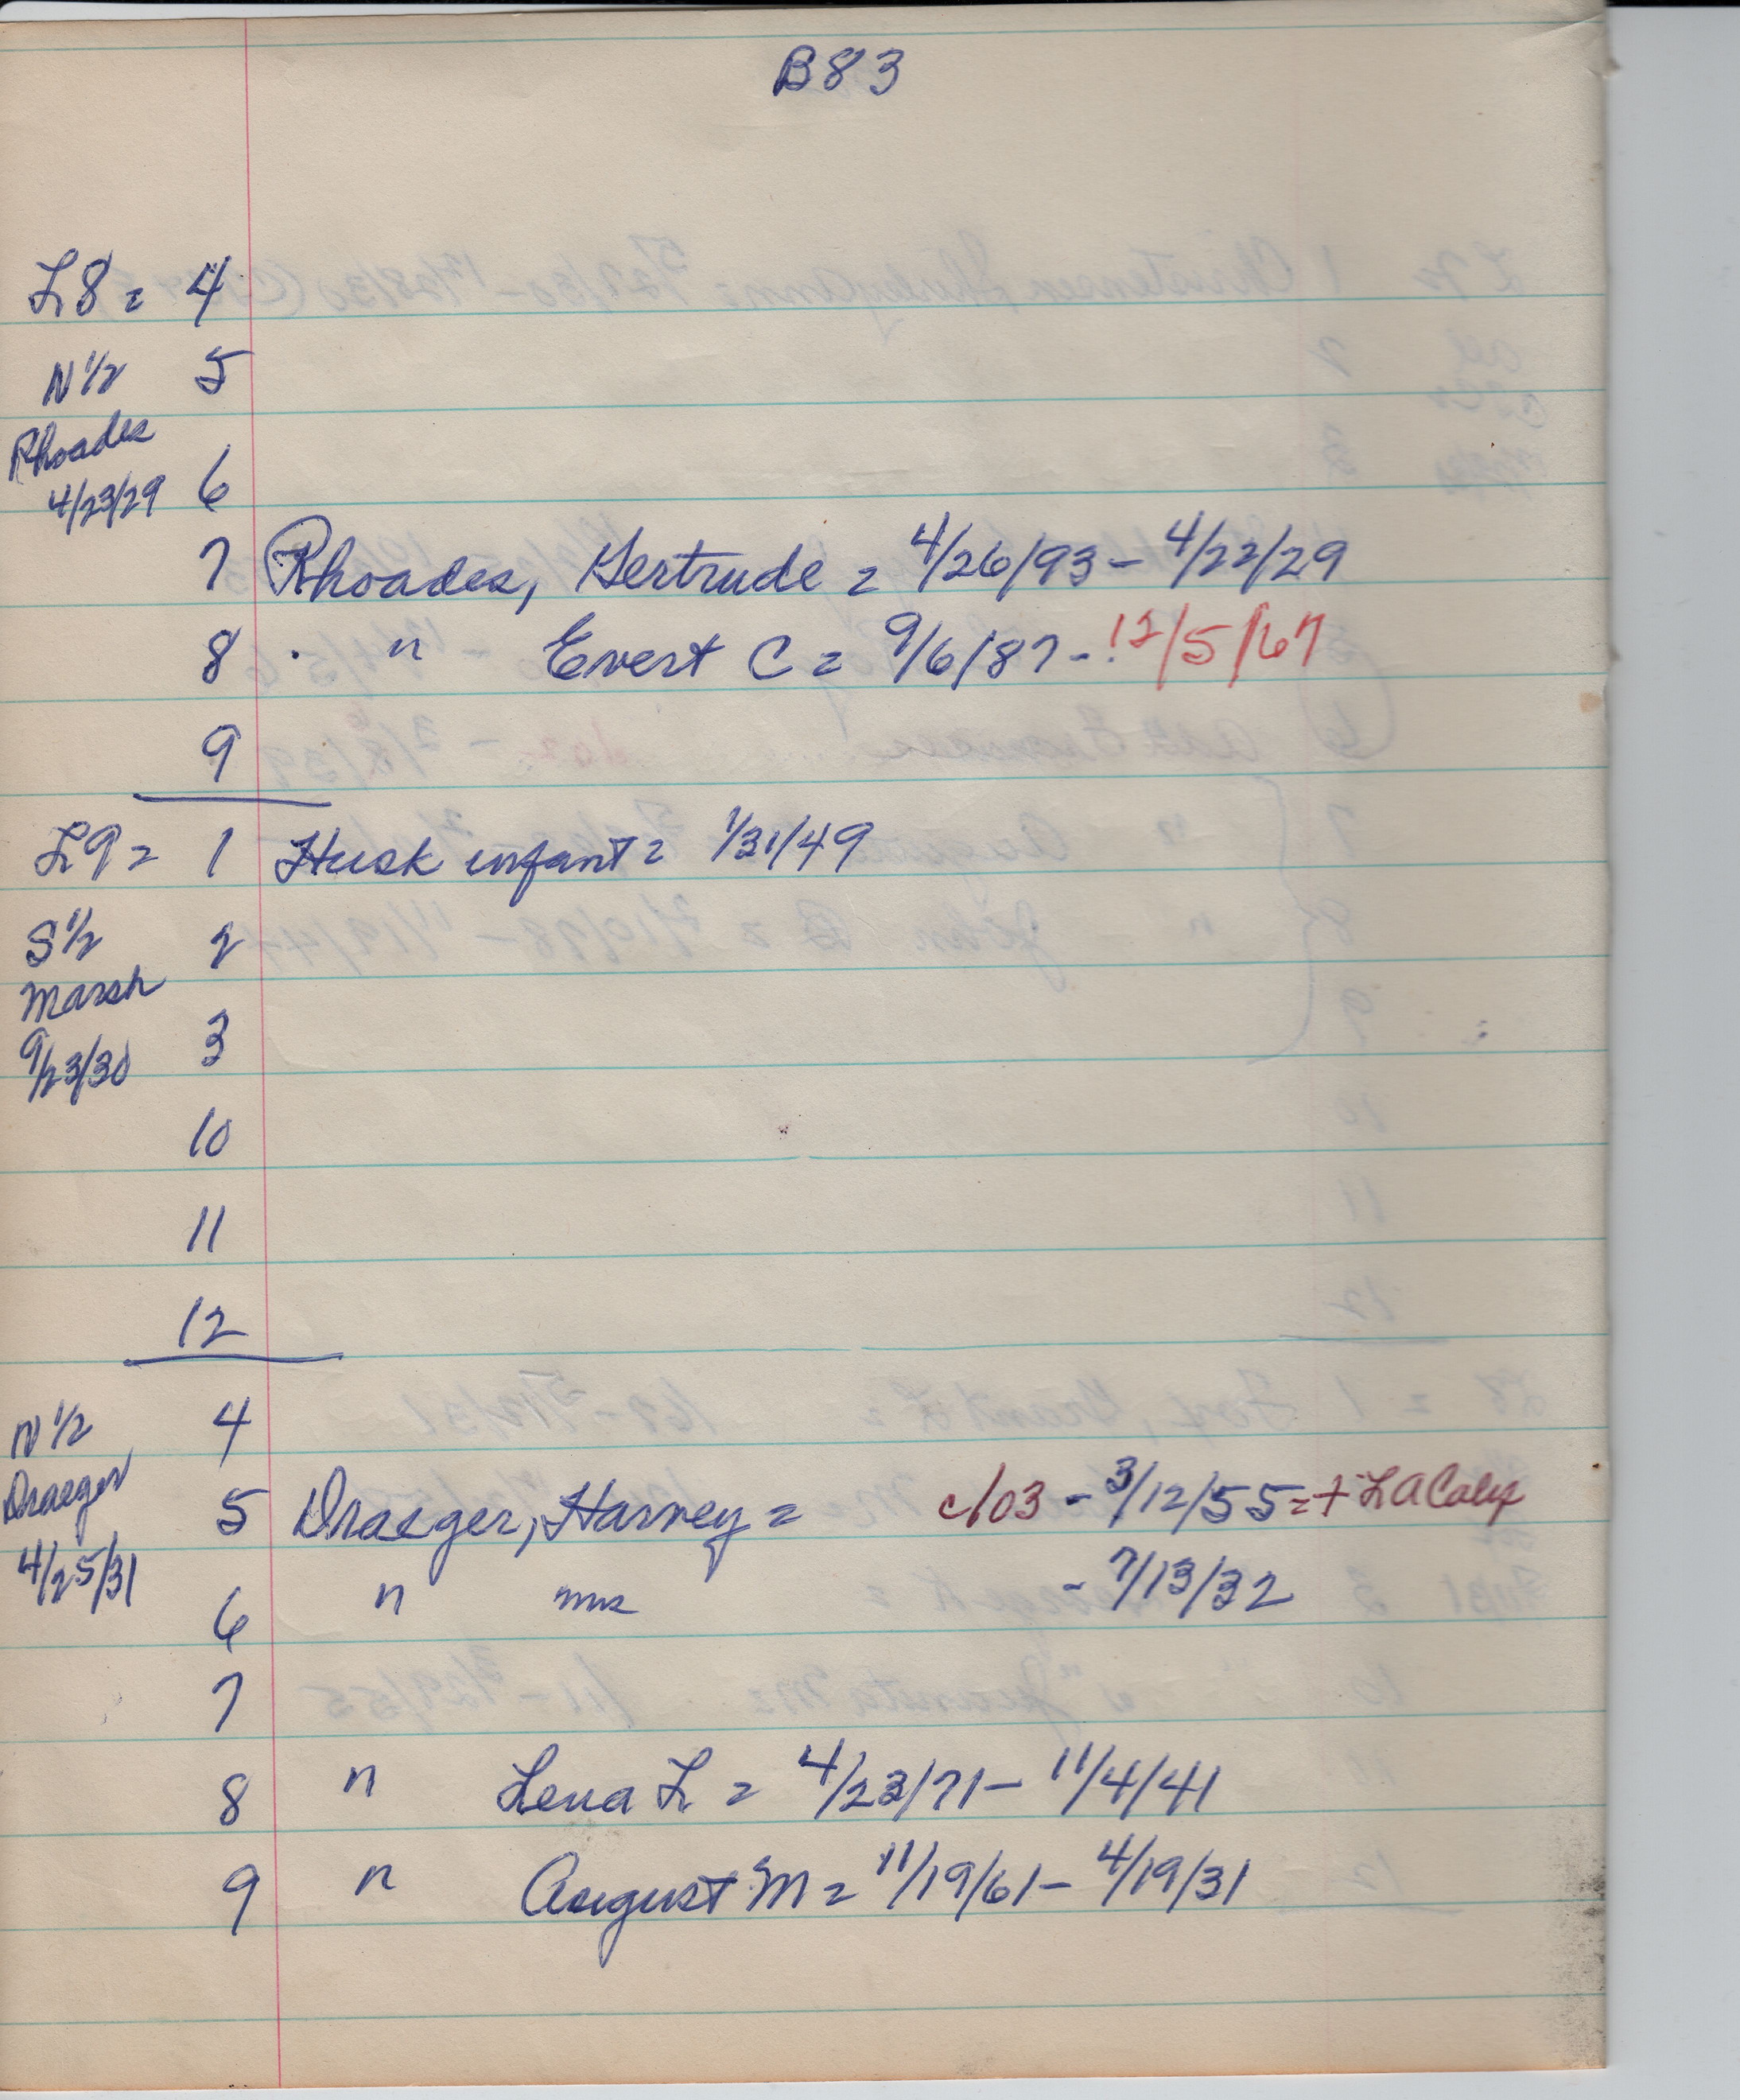 B83
L8 = 4
N 1/2 5
Rhoades
4/23/29 6
7 Rhoades, Gertrude = 4/26/93 - 4/22/29
8 " Evert C = 9/6/87 - 12/5/67
9
L9 = 1 Husk infant = 1/31/49
S 1/2 2
Marsh
9/23/30 3
10
11
12
N 1/2 4
Draeger 5 Draeger, Harvey = c/03 - 3/12/55 = + LA Calif
4/25/31 6 " mrs - 7/13/32
7
8 " Lena L = 4/23/71 - 11/4/41
9 " August M = 11/19/61 - 4/19/31